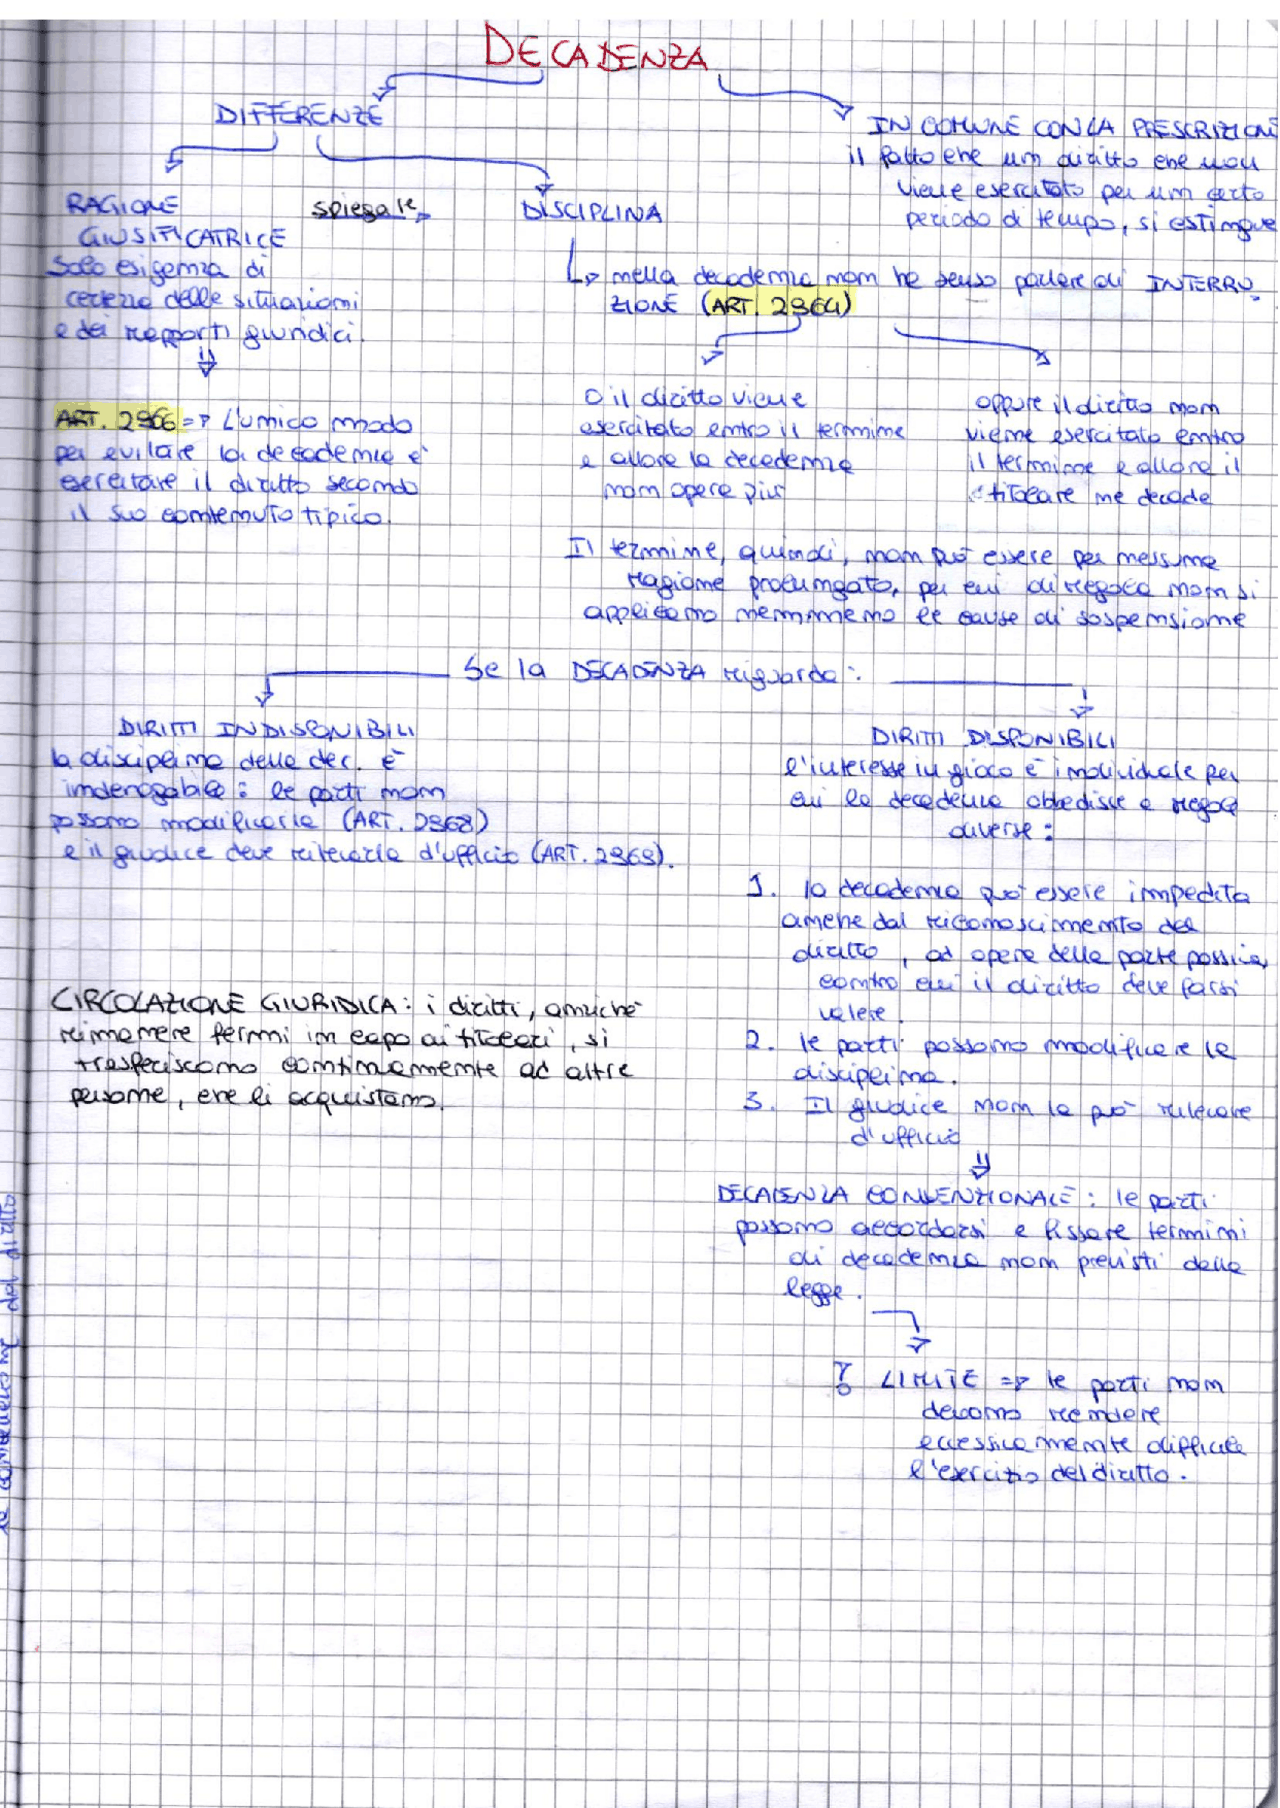 DECADENZA
DIFFERENZE
IN COMUNE CON LA PRESCRIZIONE
il fatto che un diritto che non
viene esercitato per un certo
periodo di tempo, si estingue
RAGIONE
GIUSTIFICATRICE
solo esigenza di
certezza delle situazioni
e dei rapporti giuridici.
spiegare
DISCIPLINA
nella decadenza non ha senso parlare di INTERRU
ZIONE (ART. 2964)
ART. 2966 => L'unico modo
per evitare la decadenza è
esercitare il diritto secondo
il suo contenuto tipico.
O il diritto viene
esercitato entro il termine
e allora la decadenza
non opera più
oppure il diritto non
viene esercitato entro
il termine e allora il
titolare ne decade
Il termine, quindi, non può essere per nessuna
ragione prolungato, per cui di regola non si
applicano nemmeno le cause di sospensione
Se la DECADENZA riguarda:
DIRITTI INDISPONIBILI
la disciplina della dec. è
inderogabile: le parti non
possono modificarla (ART. 2968)
e il giudice deve rilevarla d'ufficio (ART. 2969).
DIRITTI DISPONIBILI
l'interesse in gioco è individuale per
cui la decadenza obbedisce a regole
diverse:
1. la decadenza può essere impedita
anche dal riconoscimento del
diritto, ad opera della parte passiva,
contro cui il diritto deve farsi
valere.
2. le parti possono modificare la
disciplina.
3. Il giudice non la può rilevare
d'ufficio
CIRCOLAZIONE GIURIDICA: i diritti, anziché
rimanere fermi in capo ai titolari, si
trasferiscono continuamente ad altre
persone, che li acquistano.
DECADENZA CONVENZIONALE: le parti
possono accordarsi e fissare termini
di decadenza non previsti dalla
legge.
! LIMITE => le parti non
devono rendere
eccessivamente difficile
l'esercizio del diritto.
del diritto